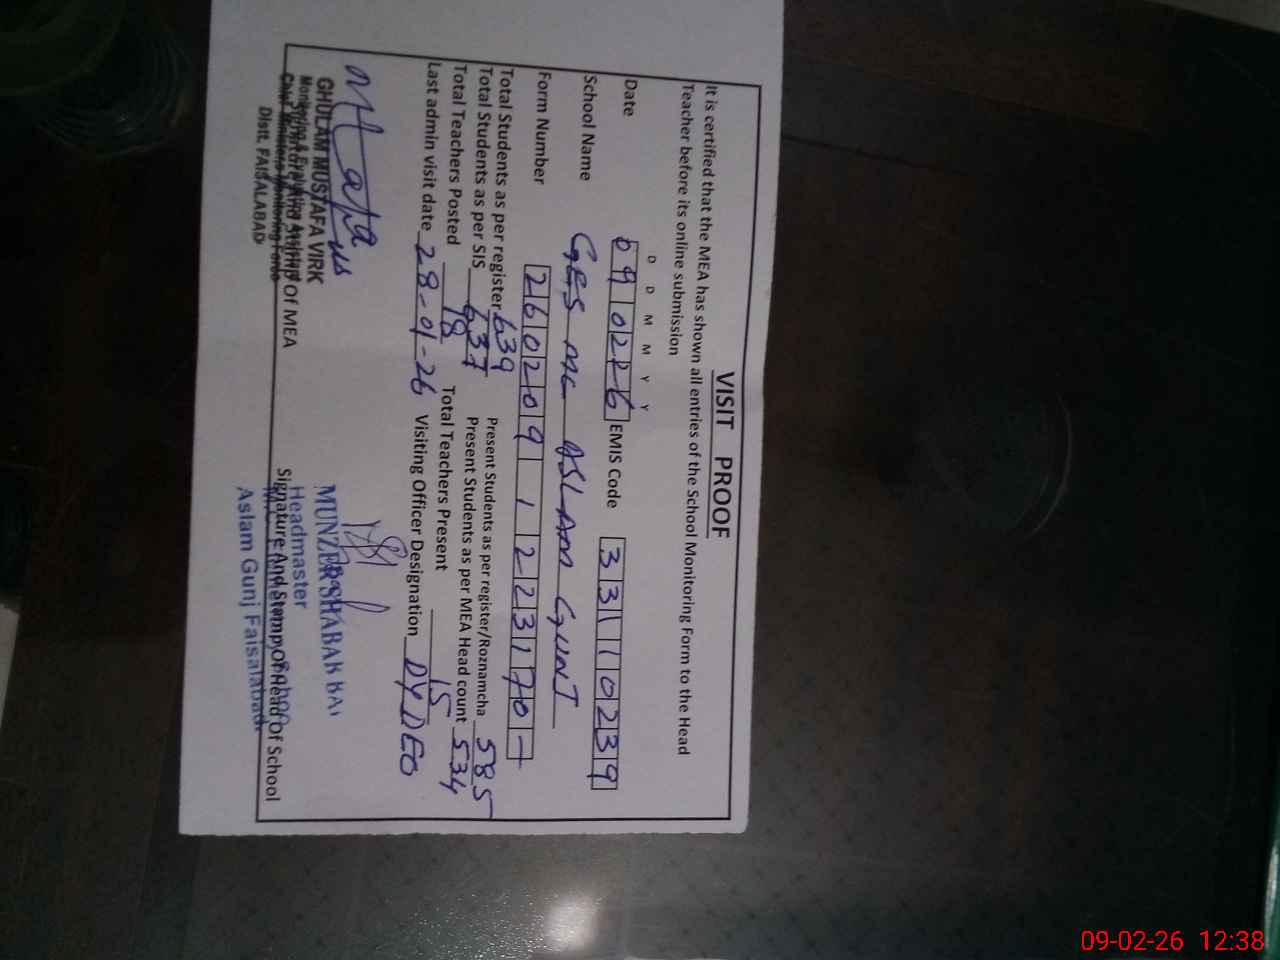 VISIT PROOF
It is certified that the MEA has shown all entries of the School Monitoring Form to the Head
Teacher before its online submission
D D M M Y Y
Date 090226 EMIS Code 33110239
School Name GES MC ASLAM GUNJ
Form Number 2602091223170-
Total Students as per register 639 Present Students as per register/Roznamcha 585
Total Students as per SIS 637 Present Students as per MEA Head count 534
Total Teachers Posted 18 Total Teachers Present 15
Last admin visit date 28-01-26 Visiting Officer Designation DY DEO
GHULAM MUSTAFA VIRK
Monitoring & Evaluation Assistant
Signature And Stamp Of MEA
Distt. FAISALABAD
Headmaster
Signature And Stamp Of Head Of School
Aslam Gunj Faisalabad
09-02-26 12:38